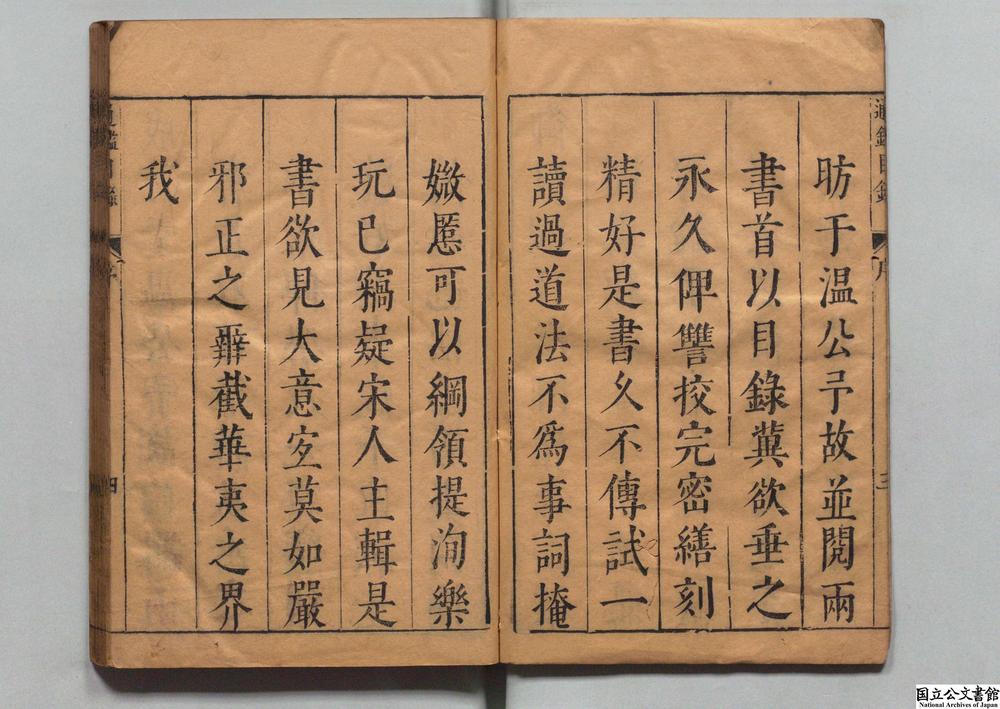 昉于温公予故並閱兩
書首以目錄冀欲垂之
永久俾讐挍完密繕刻
精好是書久不傳試一
讀過道法不爲事詞掩
媺慝可以綱領提洵樂
玩已竊疑宋人主輯是
書欲見大意宜莫如嚴
邪正之辭截華夷之界
我
通鑑目錄
序
三
通鑑目錄
序
四
国立公文書館
National Archives of Japan